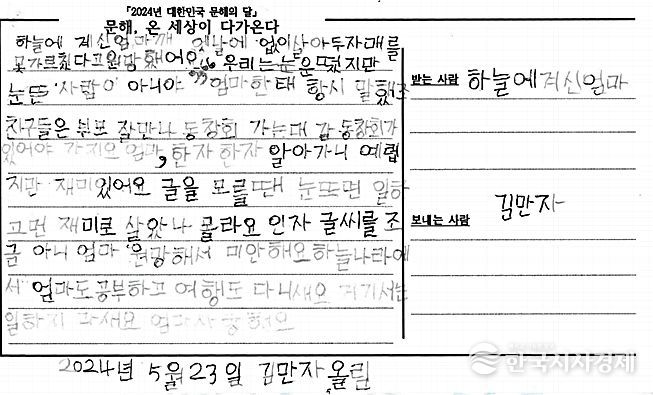 「2024년 대한민국 문해의 달」
문해, 온 세상이 다가온다
하늘에 계신엄마께 옛날에 없이살아두자매를
못가르쳤다고원망했어요 우리는눈은떴지만
눈뜬 사람이 아니야 엄마한태 항시 말했죠
친구들은 쉬프 잘만나 동창회 가는대 갈 동창회가
있어야 가지요 엄마, 한자한자 알아가니 예렵
지만 재미있어요 글을 모를때는 눈뜨면 일하
고먼 재미로 살았나 몰라요 인자 글씨를 조
금 아니 엄마 원망해서 미안해요하늘나라에
서 엄마도공부하고 여행도 다니새요 거기서는
일하지 마새요 엄마사랑해요
받는 사람 하늘에계신엄마
보내는 사람 김만자
2024년 5월23일 김만자올림
한국시사경제